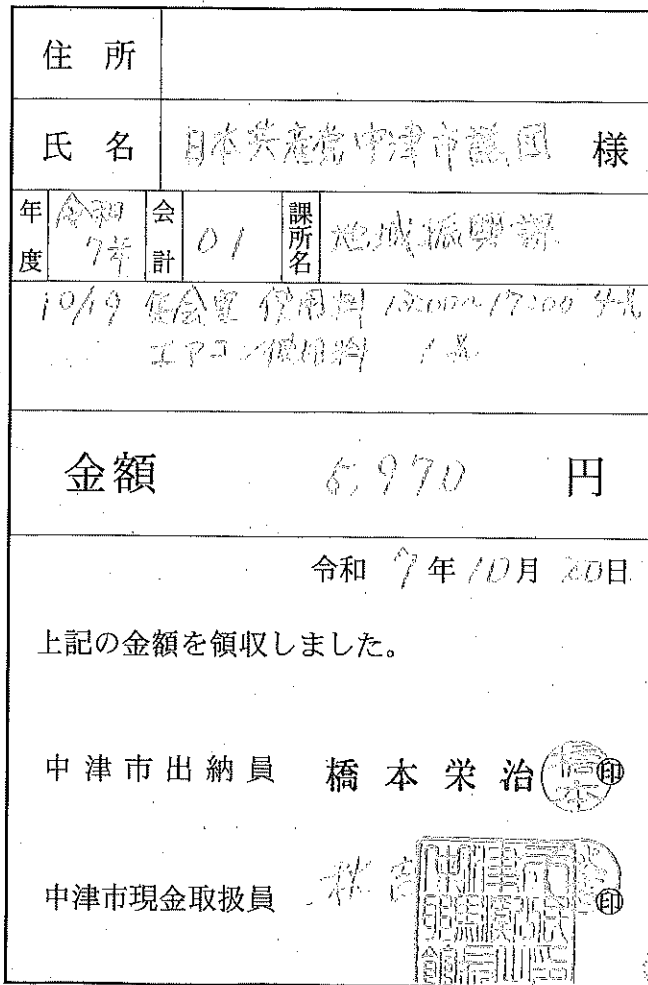 住所
氏名 日本共産党中津市議団 様
年度 令和7年 会計 01 課所名 地域振興課
10/19 使用料 13:00~17:00
エアコン使用料
金額 5,970 円
令和 7年 10月 20日
上記の金額を領収しました。
中津市出納員 橋本栄治 橋本 印
中津市現金取扱員 印